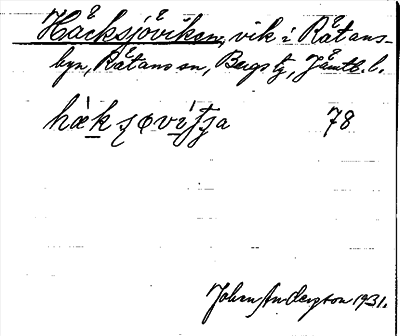 Håcksjöviken, vik i Rätans-
byn, Rätans sn, Bergs tg, Jämtl. l.
hὰk ʂøvítʂa 78
Johan Anderson 1931.